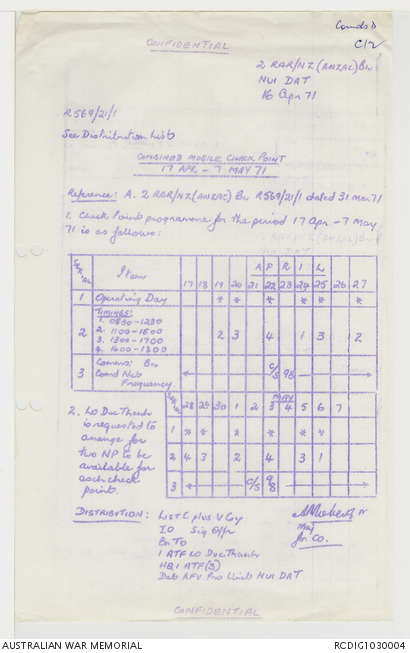 Comds D
C12
CONFIDENTIAL
2 RAR/NZ (ANZAC) Bn
NUI DAT
16 Apr 71
R569/21/1
See Distribution List
COMBINED MOBILE CHECK POINT
17 APR - 7 MAY 71
Reference: A. 2 RAR/NZ (ANZAC) Bn R569/21/1 dated 31 Mar 71
1. Check Point programme for the period 17 Apr - 7 May
71 is as follows:
Item A P R I L
17 18 19 20 21 22 23 24 25 26 27
1 Operating Day * * * * * *
TIMINGS:
1. 0830-1230
2 2. 1100-1500 2 3 4 1 3 2
3. 1300-1700
4. 1400-1800
3 Comms: Bn
Comd Net
Frequency. C/S 98
MAY
28 29 30 1 2 3 4 5 6 7
1 * * * * * *
2 4 3 2 4 3 1
3 C/S 98
2. LO Duc Thanh
is requested to
arrange for
two NP to be
available for
each check
point.
DISTRIBUTION: List C plus V Coy
IO Sig Offr
Bn TO
1 ATF LO Duc Thanh
HQ 1 ATF (3)
Det AFV Pro Unit NUI DAT
Maj
for CO.
CONFIDENTIAL
AUSTRALIAN WAR MEMORIAL
RCDIG1030004